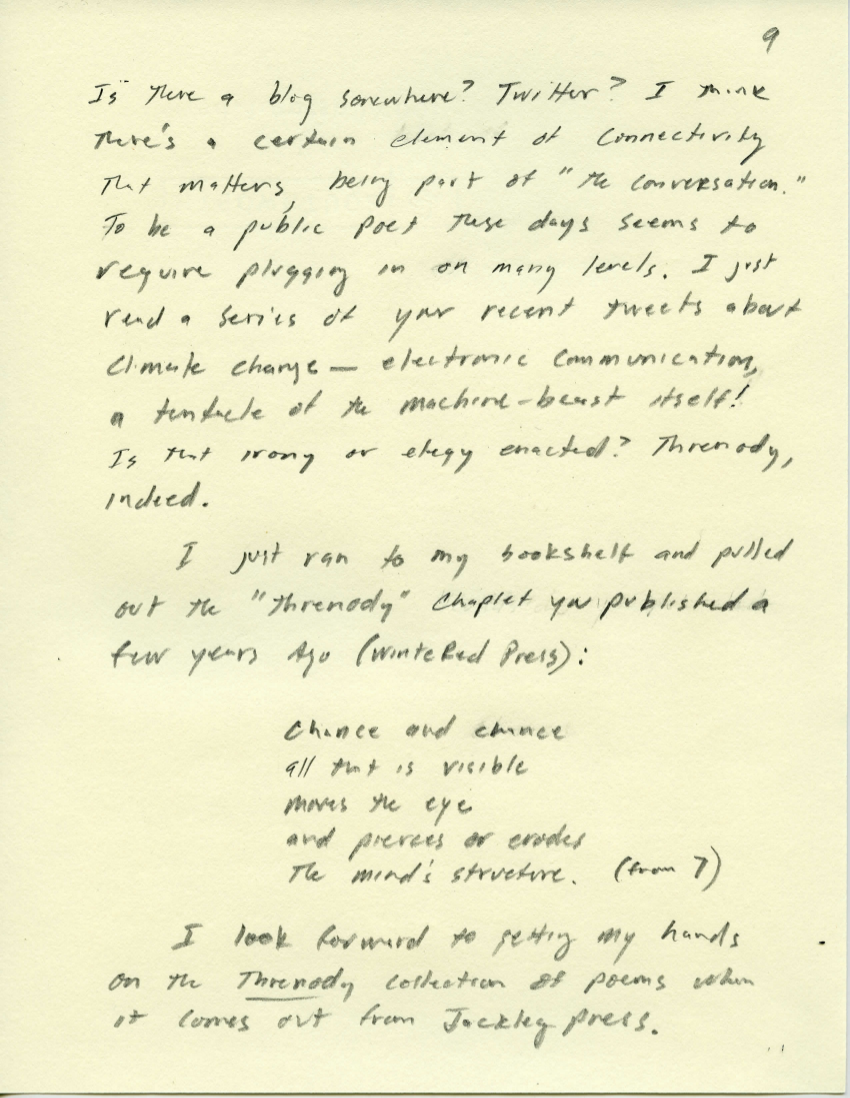 9
Is there a blog somewhere? Twitter? I think
there's a certain element of connectivity
that matters, being part of "the conversation."
To be a public poet these days seems to
require plugging in on many levels. I just
read a series of your recent tweets about
climate change — electronic communication,
a tentacle of the machine-beast itself!
Is that irony or elegy enacted? Threnody,
indeed.
I just ran to my bookshelf and pulled
out the "Threnody" chaplet you published a
few years ago (WinteRed Press):
Chance and chance
all that is visible
moves the eye
and pierces or erodes
the mind's structure. (from 7)
I look forward to getting my hands
on the Threnody collection of poems when
it comes out from Jackleg Press.